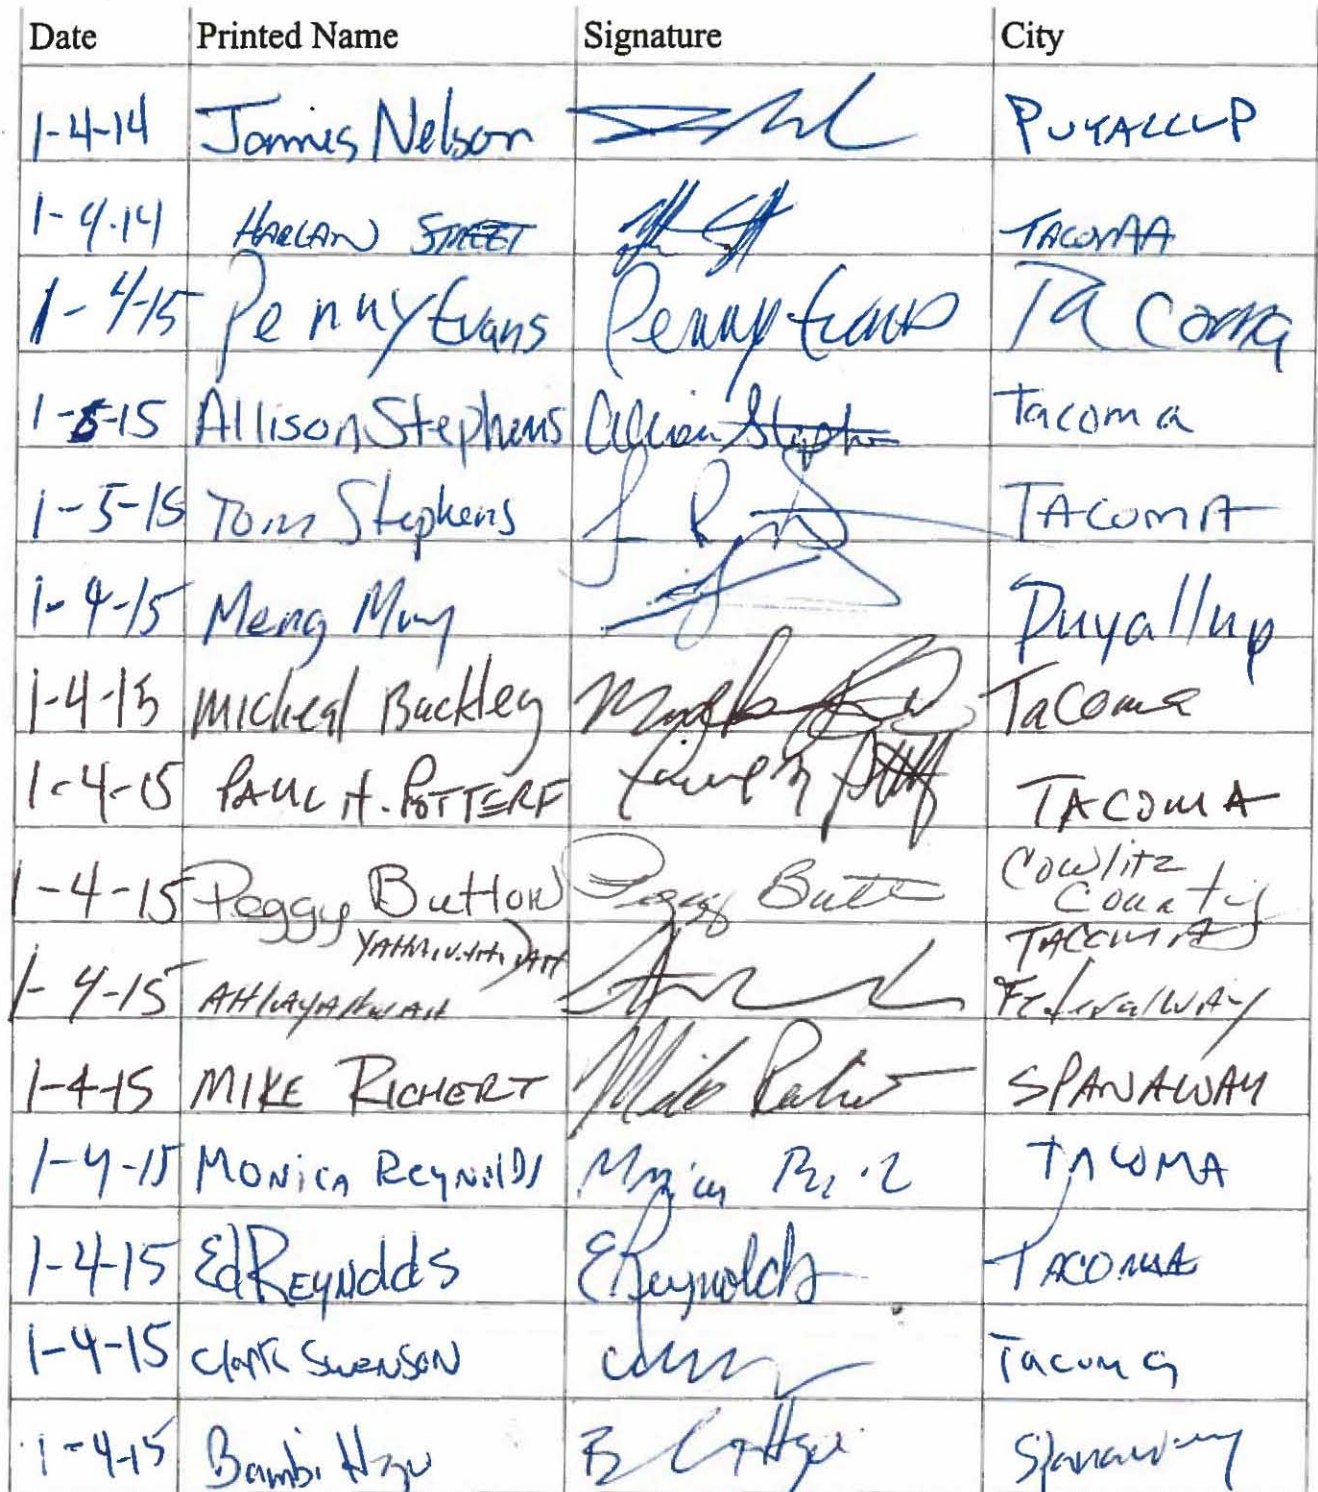 Date Printed Name Signature City
1-4-14 James Nelson PUYALLUP
1-4-14 HARLAN STREET TACOMA
1-4-15 Penny Evans Penny Evans Tacoma
1-5-15 Allison Stephens Allison Stephens Tacoma
1-5-15 Tom Stephens TACOMA
1-4-15 Meng Muy Puyallup
1-4-15 Micheal Buckley Tacoma
1-4-15 PAUL H. POTTERF TACOMA
1-4-15 Peggy Button Peggy Button Cowlitz
County
TACOMA
1-4-15 Federal WAY
1-4-15 MIKE RICHERT Mike Richert SPANAWAY
1-4-15 MONICA ReyNolDS TACOMA
1-4-15 Ed REYNoldS E Reynolds TACOMA
1-4-15 Clark SWENSON Tacoma
1-4-15 Bambi Spanaway